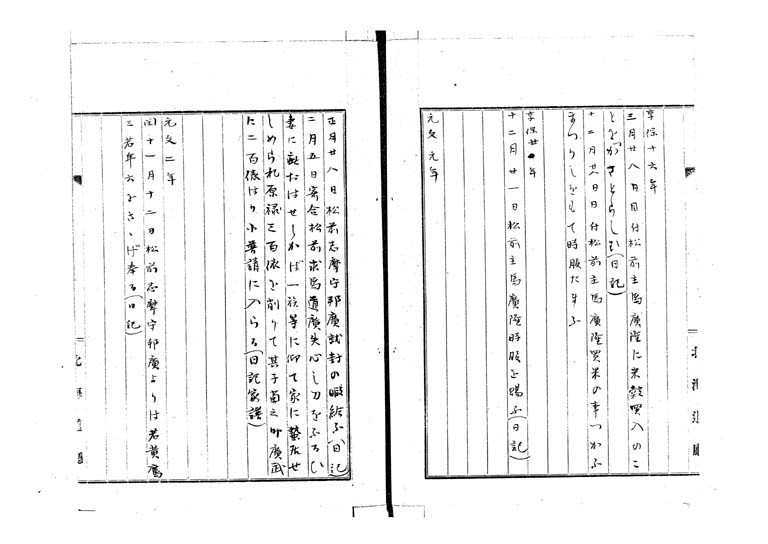 享保十六年
三月廿八日目付松前主馬廣隆に米穀買入のこ
とをつかさどらしむ(日記)
十二月廿八日目付松前主馬廣隆買米の事つかふ
まつりしをもて時服たまふ
享保廿年
十二月廿一日松前主馬廣隆時服を賜ふ(日記)
元文元年
正月廿八日松前志摩守邦廣就封の暇給ふ(日記)
二月五日寄合松前求馬廣失心し刀をふるい
妻に疵おはせしかば一族等に仰て家に蟄居せ
しめられ原禄三百俵を削りて其子 廣武
に二百俵はり小普請に入らる(日記家譜)
元文二年
閏十一月十二日松前志摩守邦廣よりは若黄鷹
三若年六をさゝげ奉る(日記)
北海道廳
北海道廳